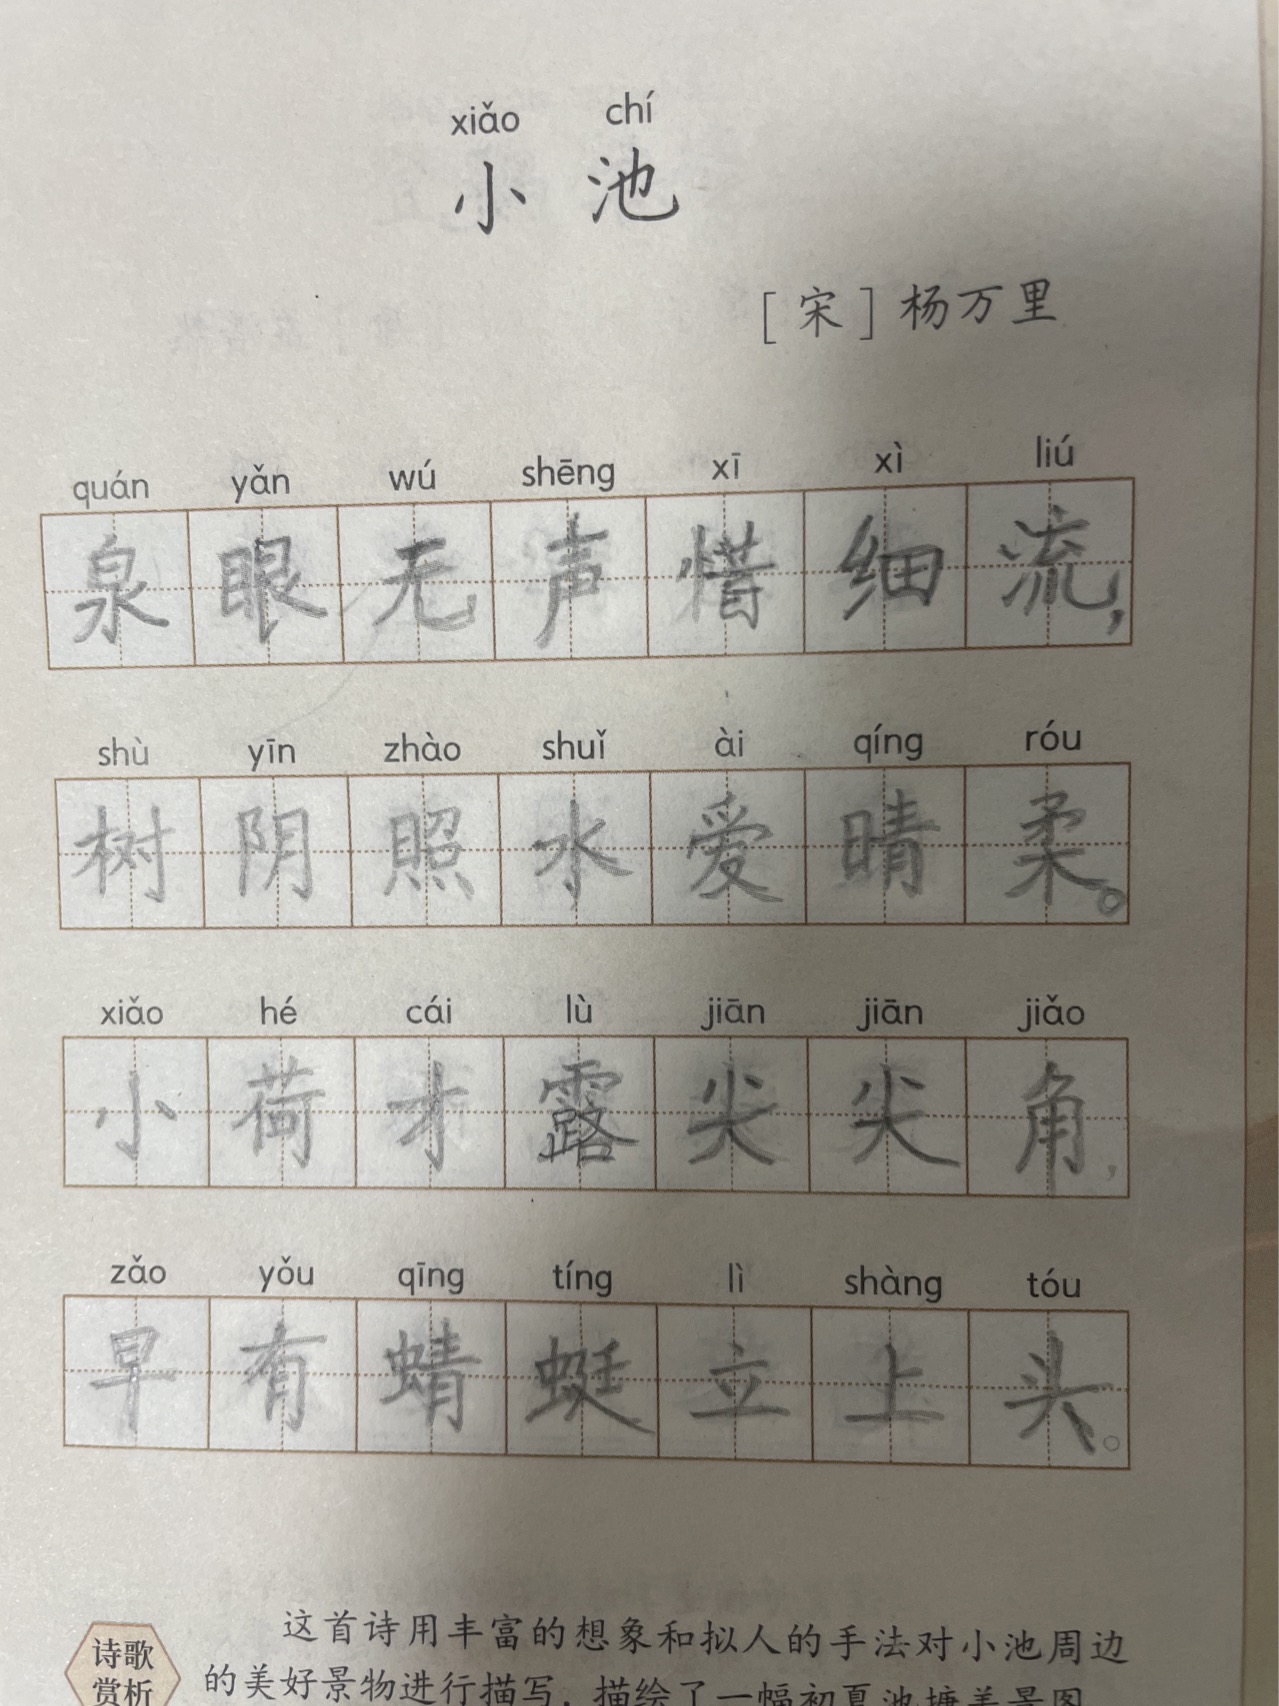 xiǎo chí
小池
[宋]杨万里
quán yǎn wú shēng xī xì liú
泉眼无声惜细流，
shù yīn zhào shuǐ ài qíng róu
树阴照水爱晴柔。
xiǎo hé cái lù jiān jiān jiǎo
小荷才露尖尖角，
zǎo yǒu qīng tíng lì shàng tóu
早有蜻蜓立上头。
诗歌
赏析
这首诗用丰富的想象和拟人的手法对小池周边
的美好景物进行描写，描绘了一幅初夏池塘美景图